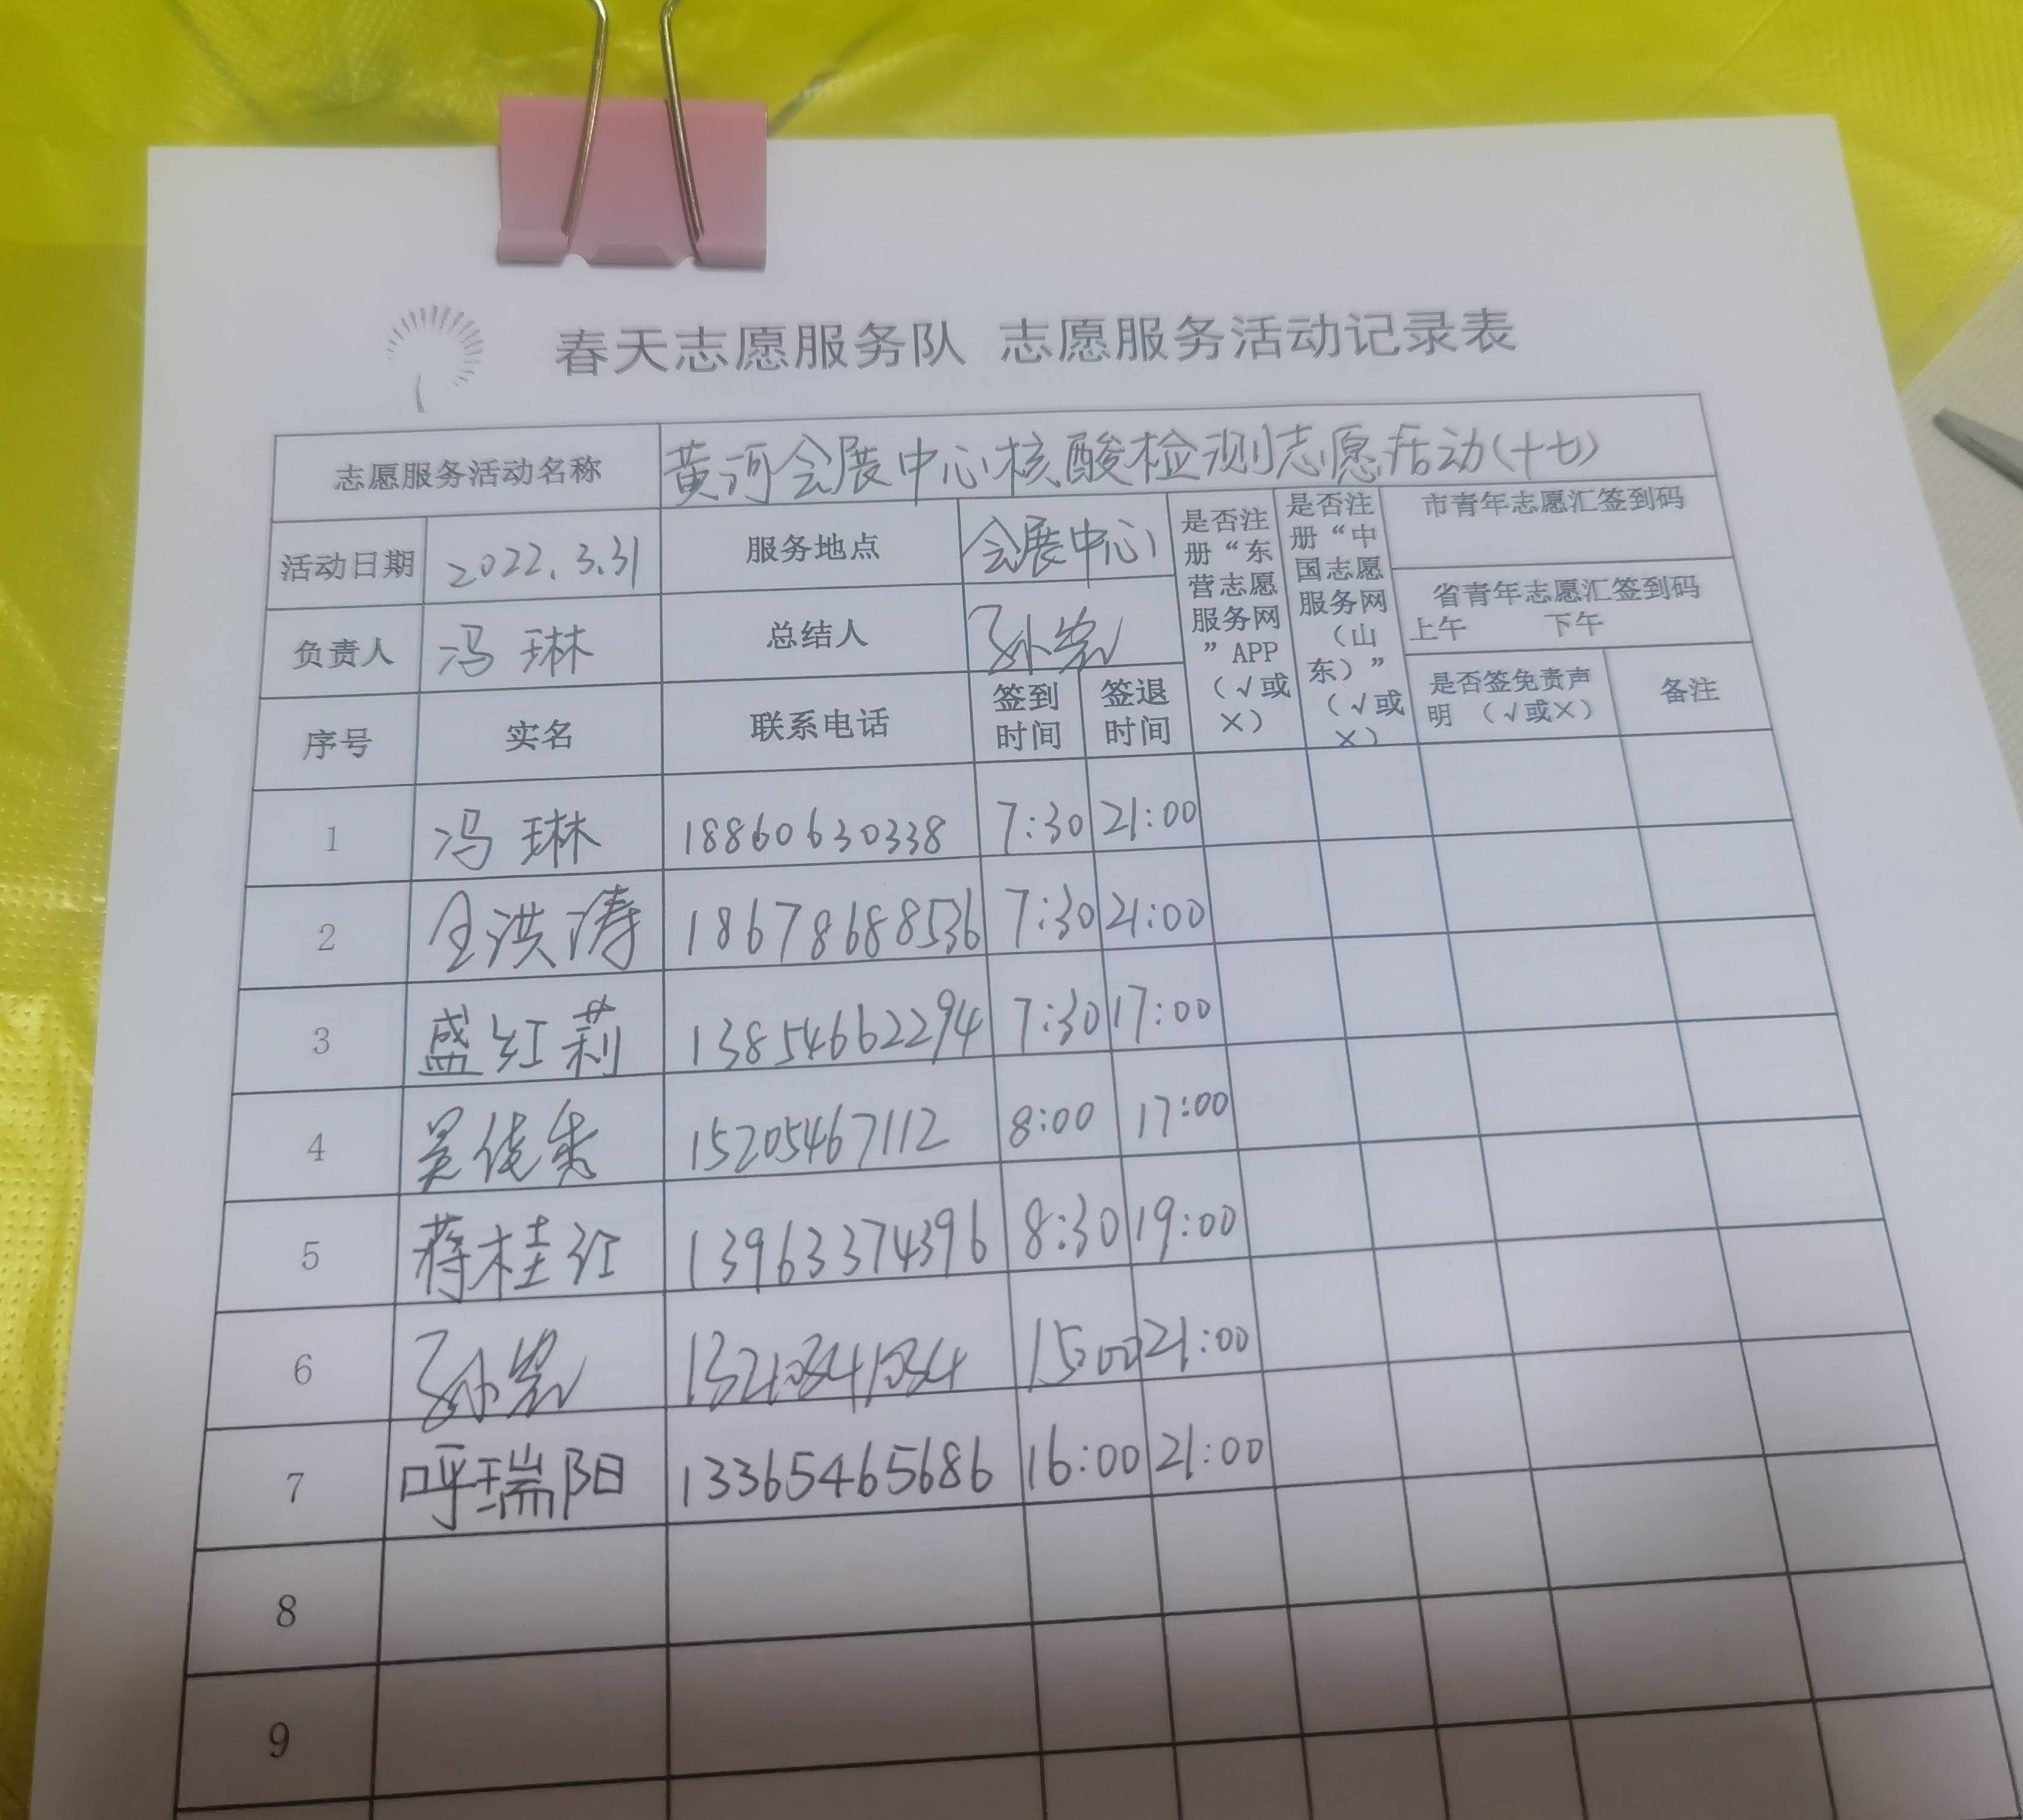 春天志愿服务队 志愿服务活动记录表
志愿服务活动名称 黄河会展中心核酸检测志愿活动(十七)
活动日期 2022.3.31 服务地点 会展中心 是否注册“东营志愿服务网”APP（√或×） 是否注册“中国志愿服务网（山东）”（√或×） 市青年志愿汇签到码
省青年志愿汇签到码
上午 下午
负责人 冯琳 总结人 孙岩
序号 实名 联系电话 签到时间 签退时间 是否签免责声明（√或×） 备注
1 冯琳 18860630338 7:30 21:00
2 全洪涛 18678688536 7:30 21:00
3 盛红莉 13854662294 7:30 17:00
4 吴秀 15205467112 8:00 17:00
5 蒋桂红 13963374396 8:30 19:00
6 孙岩 15:00 21:00
7 呼瑞阳 13365465686 16:00 21:00
8
9